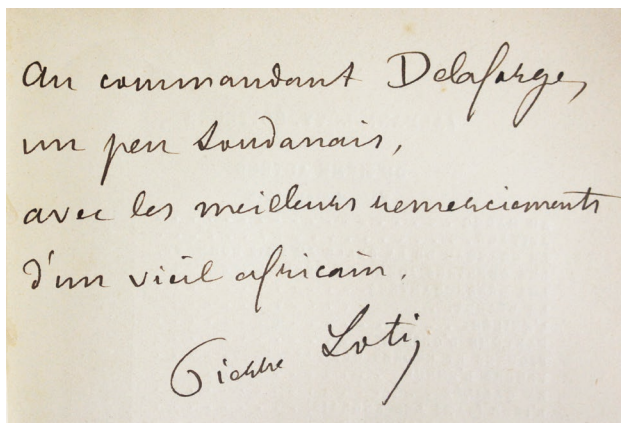 Au commandant Delaforge,
un peu Soudanais,
avec les meilleurs remerciements
d'un vieil africain.
Pierre Loti